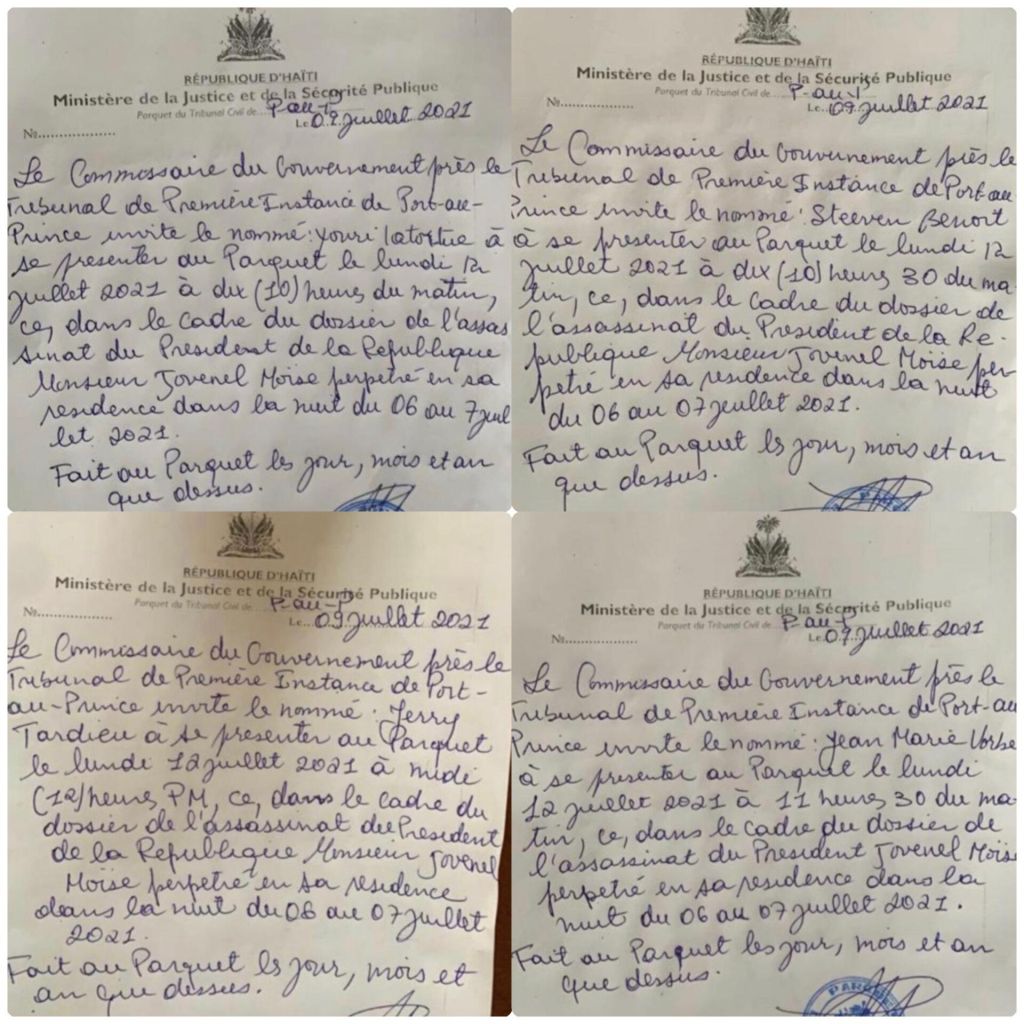 RÉPUBLIQUE D'HAÏTI
Ministère de la Justice et de la Sécurité Publique
Parquet du Tribunal Civil de... P-au-P
Le 09 Juillet 2021
No..................
Le Commissaire du Gouvernement près le
Tribunal de Première Instance de Port-au-
Prince invite le nommé: Youri latortue à
se presenter au Parquet le lundi 12
juillet 2021 à dix (10) heures du matin,
ce, dans le cadre du dossier de l'assas
sinat du President de la République
Monsieur Jovenel Moïse perpetré en sa
residence dans la nuit du 06 au 7 juil
let 2021.
Fait au Parquet les jour, mois et an
que dessus.
RÉPUBLIQUE D'HAÏTI
Ministère de la Justice et de la Sécurité Publique
Parquet du Tribunal Civil de... P-au-P
Le...09 Juillet 2021
No..................
Le Commissaire du Gouvernement près le
Tribunal de Première Instance de Port-au
Prince invite le nommé: Steeven Benoit
à se presenter au Parquet le lundi 12
juillet 2021 à dix (10) heures 30 du ma-
tin, ce, dans le cadre du dossier de
l'assassinat du President de la Re-
publique Monsieur Jovenel Moïse per-
petré en sa residence dans la nuit
du 06 au 07 juillet 2021.
Fait au Parquet les jour, mois et an
que dessus.
RÉPUBLIQUE D'HAÏTI
Ministère de la Justice et de la Sécurité Publique
Parquet du Tribunal Civil de... P-au-P
Le...09 Juillet 2021
No..................
Le Commissaire du Gouvernement près le
Tribunal de Première Instance de Port-
au-Prince invite le nommé: Jerry
Tardieu à se presenter au Parquet
le lundi 12 juillet 2021 à midi
(12) heures PM, ce, dans le cadre du
dossier de l'assassinat du President
de la République Monsieur Jovenel
Moïse perpetré en sa residence
dans la nuit du 06 au 07 juillet
2021.
Fait au Parquet les jour, mois et
an que dessus.
RÉPUBLIQUE D'HAÏTI
Ministère de la Justice et de la Sécurité Publique
Parquet du Tribunal Civil de... P-au-P
Le 09 Juillet 2021
No..................
Le Commissaire du Gouvernement près le
Tribunal de Première Instance de Port-au
Prince invite le nommé: Jean Marie Vorbe
à se presenter au Parquet le lundi
12 juillet 2021 à 11 heures 30 du ma-
tin, ce, dans le cadre du dossier de
l'assassinat du President Jovenel Moïse
perpetré en sa residence dans la
nuit du 06 au 07 juillet 2021.
Fait au Parquet les jour, mois et an
que dessus.
PARQUE